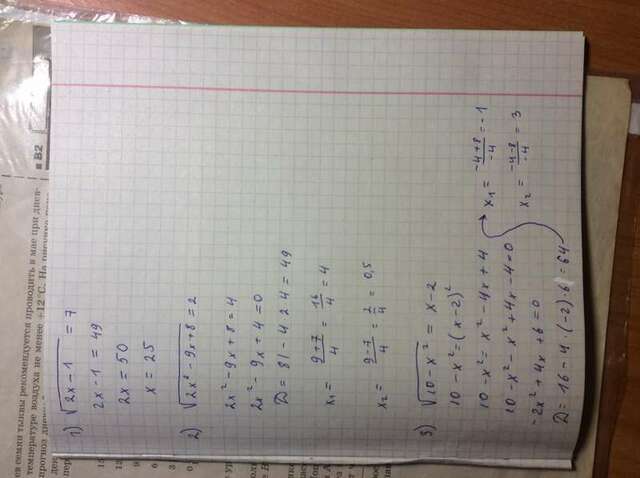 ев семян тыквы рекомендуется проводить в мае при днев-
температуре воздуха не менее +12 °С. На рисунке
В2
1) √(2x-1) = 7
2x-1 = 49
2x = 50
x = 25
2) √(2x² - 9x+8) = 2
2x² - 9x + 8 = 4
2x² - 9x + 4 = 0
D = 81 - 4·2·4 = 49
x₁ = (9+7)/4 = 16/4 = 4
x₂ = (9-7)/4 = 2/4 = 0,5
3) √(10-x²) = x-2
10 - x² = (x-2)²
10 - x² = x² - 4x + 4
10 - x² - x² + 4x - 4 = 0
-2x² + 4x + 6 = 0
D = 16 - 4·(-2)·6 = 64
x₁ = (-4+8)/-4 = -1
x₂ = (-4-8)/-4 = 3